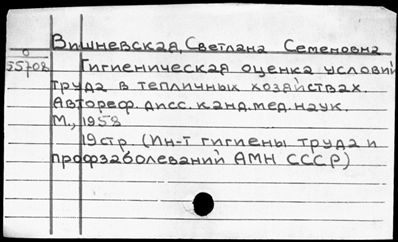 Вишневская, Светлана Семеновна
0
55708
Гигиеническая оценка условий
труда в тепличных хозяйствах.
Автореф. дисс. канд. мед. наук.
М., 1958
19 стр. (Ин-т гигиены труда и
профзаболеваний АМН СССР)